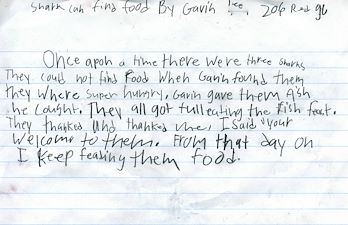 Shark can find food By Gavin Lee, 206 Red gb
Once apon a time there were three sharks
They could not find Food When Gavin found them
they Where super hunry. Gavin gave them fish
he cought. They all got full eating the fish feast.
They thanked and thanked me, I said your
Welcome to them. From that day on
I keep feading them food.